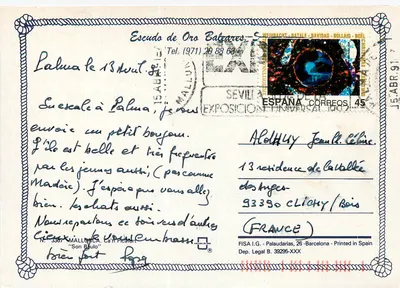 Escudo de Oro Baleares, S
Tel. (971) 20 88 66
NAVIDAD
ESPAÑA CORREOS 45
MALLORCA
15 ABR
SEVILLA
EXPOSICION UNIVERSAL 1992
15.ABR.91
Palma le 13 Avril 91
Su escale à Palma, je vous
envoie un petit bonjour.
l'île est belle et très fréquentée
par les jeunes aussi, (pas comme
Madère). J'espère que vous allez
bien. les chats aussi.
Nous repartons ce soir vers d'autres
cieux. Je vous embrasse
bien fort
MALLORCA
"Son Baulo"
Jean
13 residence de la vallée
des anges
93390 CLICHY / Bois
(FRANCE)
FISA I.G. - Palaudarias, 26 - Barcelona - Printed in Spain
Dep. Legal B. 39295-XXX